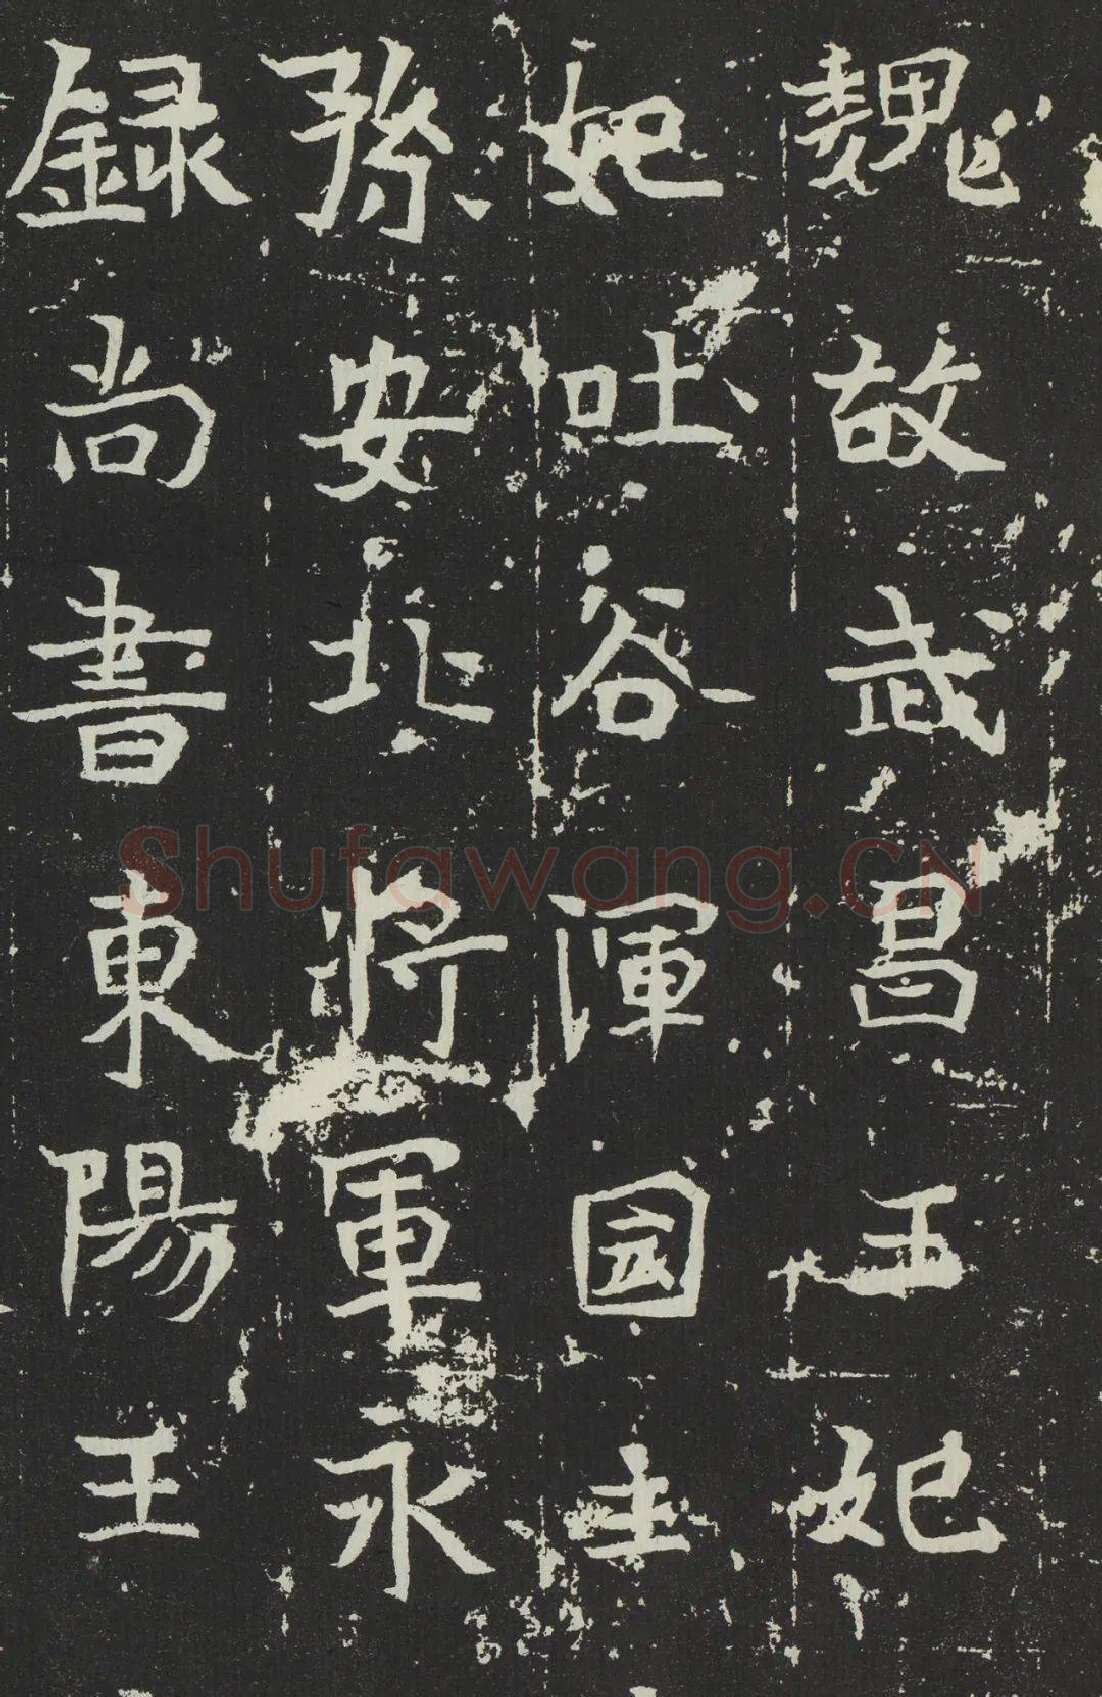 魏故武昌王妃
妃吐谷渾國主
孫安北將軍永
録尚書東陽王
Shufawang.CN